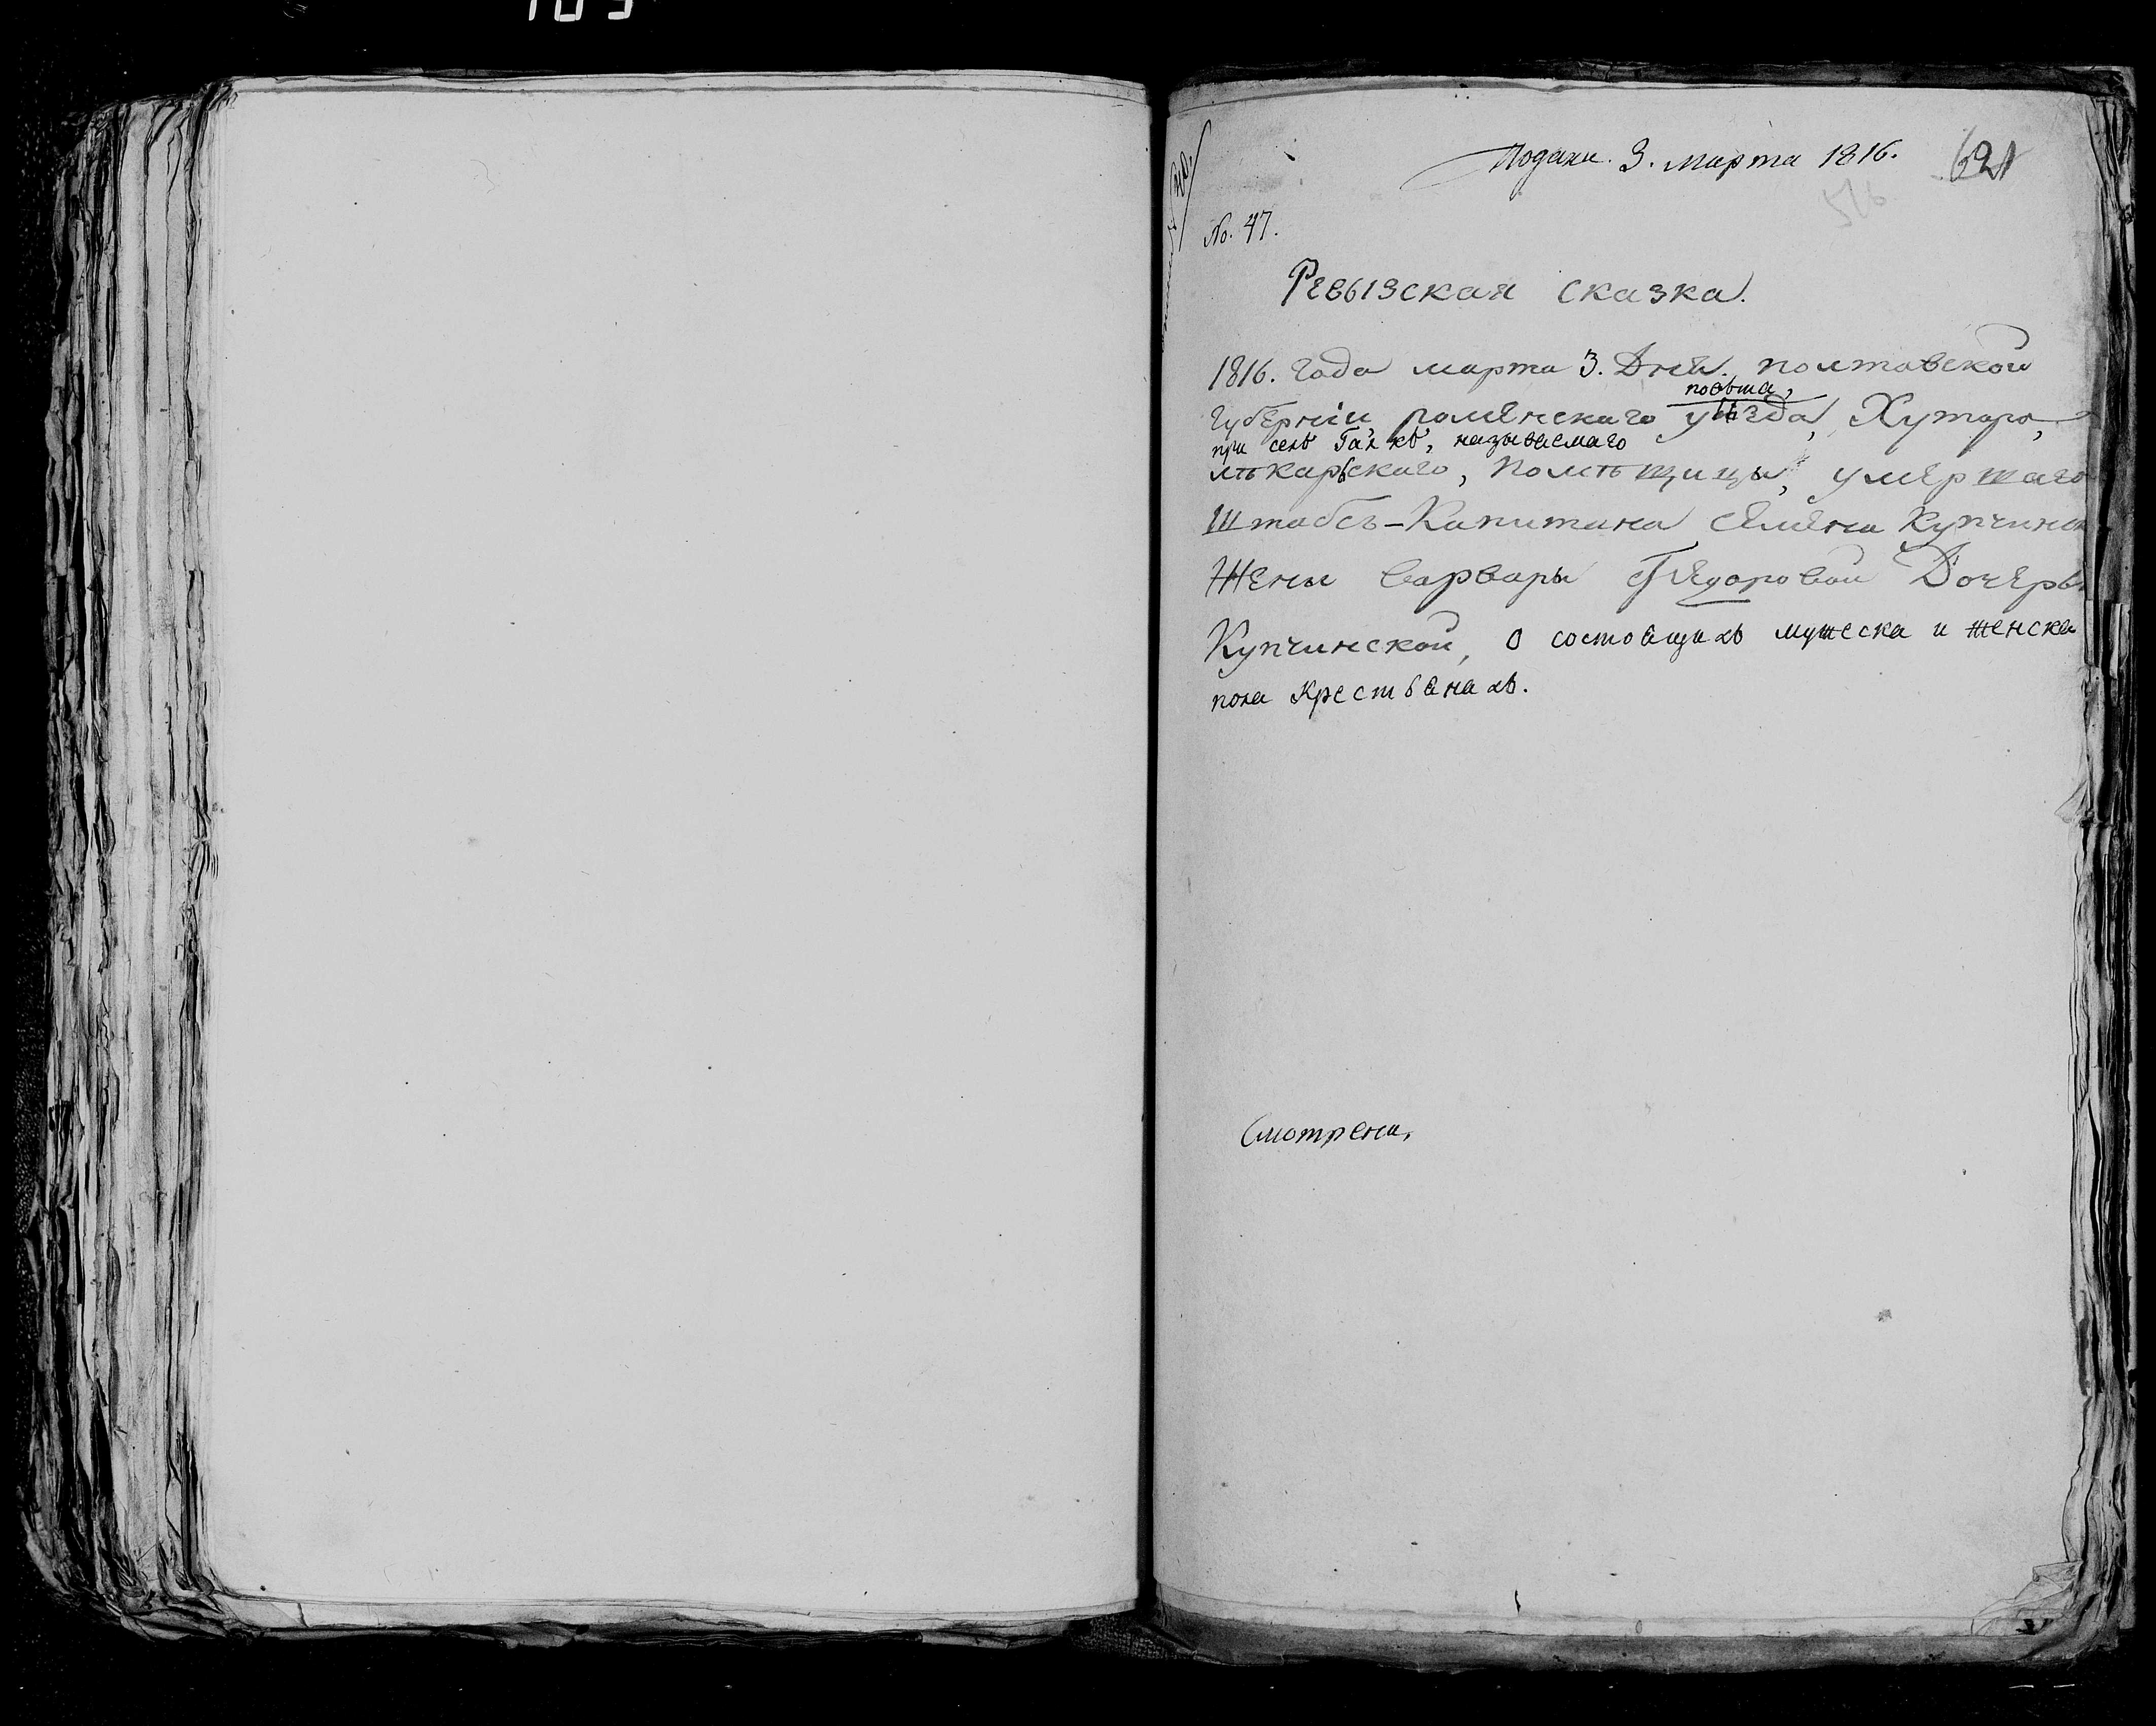 Подана. 3. марта 1816.
621
516
No. 47.
Ревызская сказка.
1816. года марта 3. Дня. полтавской
повѣта,
Губерніи, роменскаго уѣзда, Хутора,
при селѣ Галкѣ, называемаго
лѣкарьскаго, помѣщицы, умершаго
Штабсъ-Капитана Семена Купчинск
Жены Варвары Феодоровой Дочеры
Купчинской, о состоящихъ мужеска и женска
пола крестьянахъ.
Смотрена,